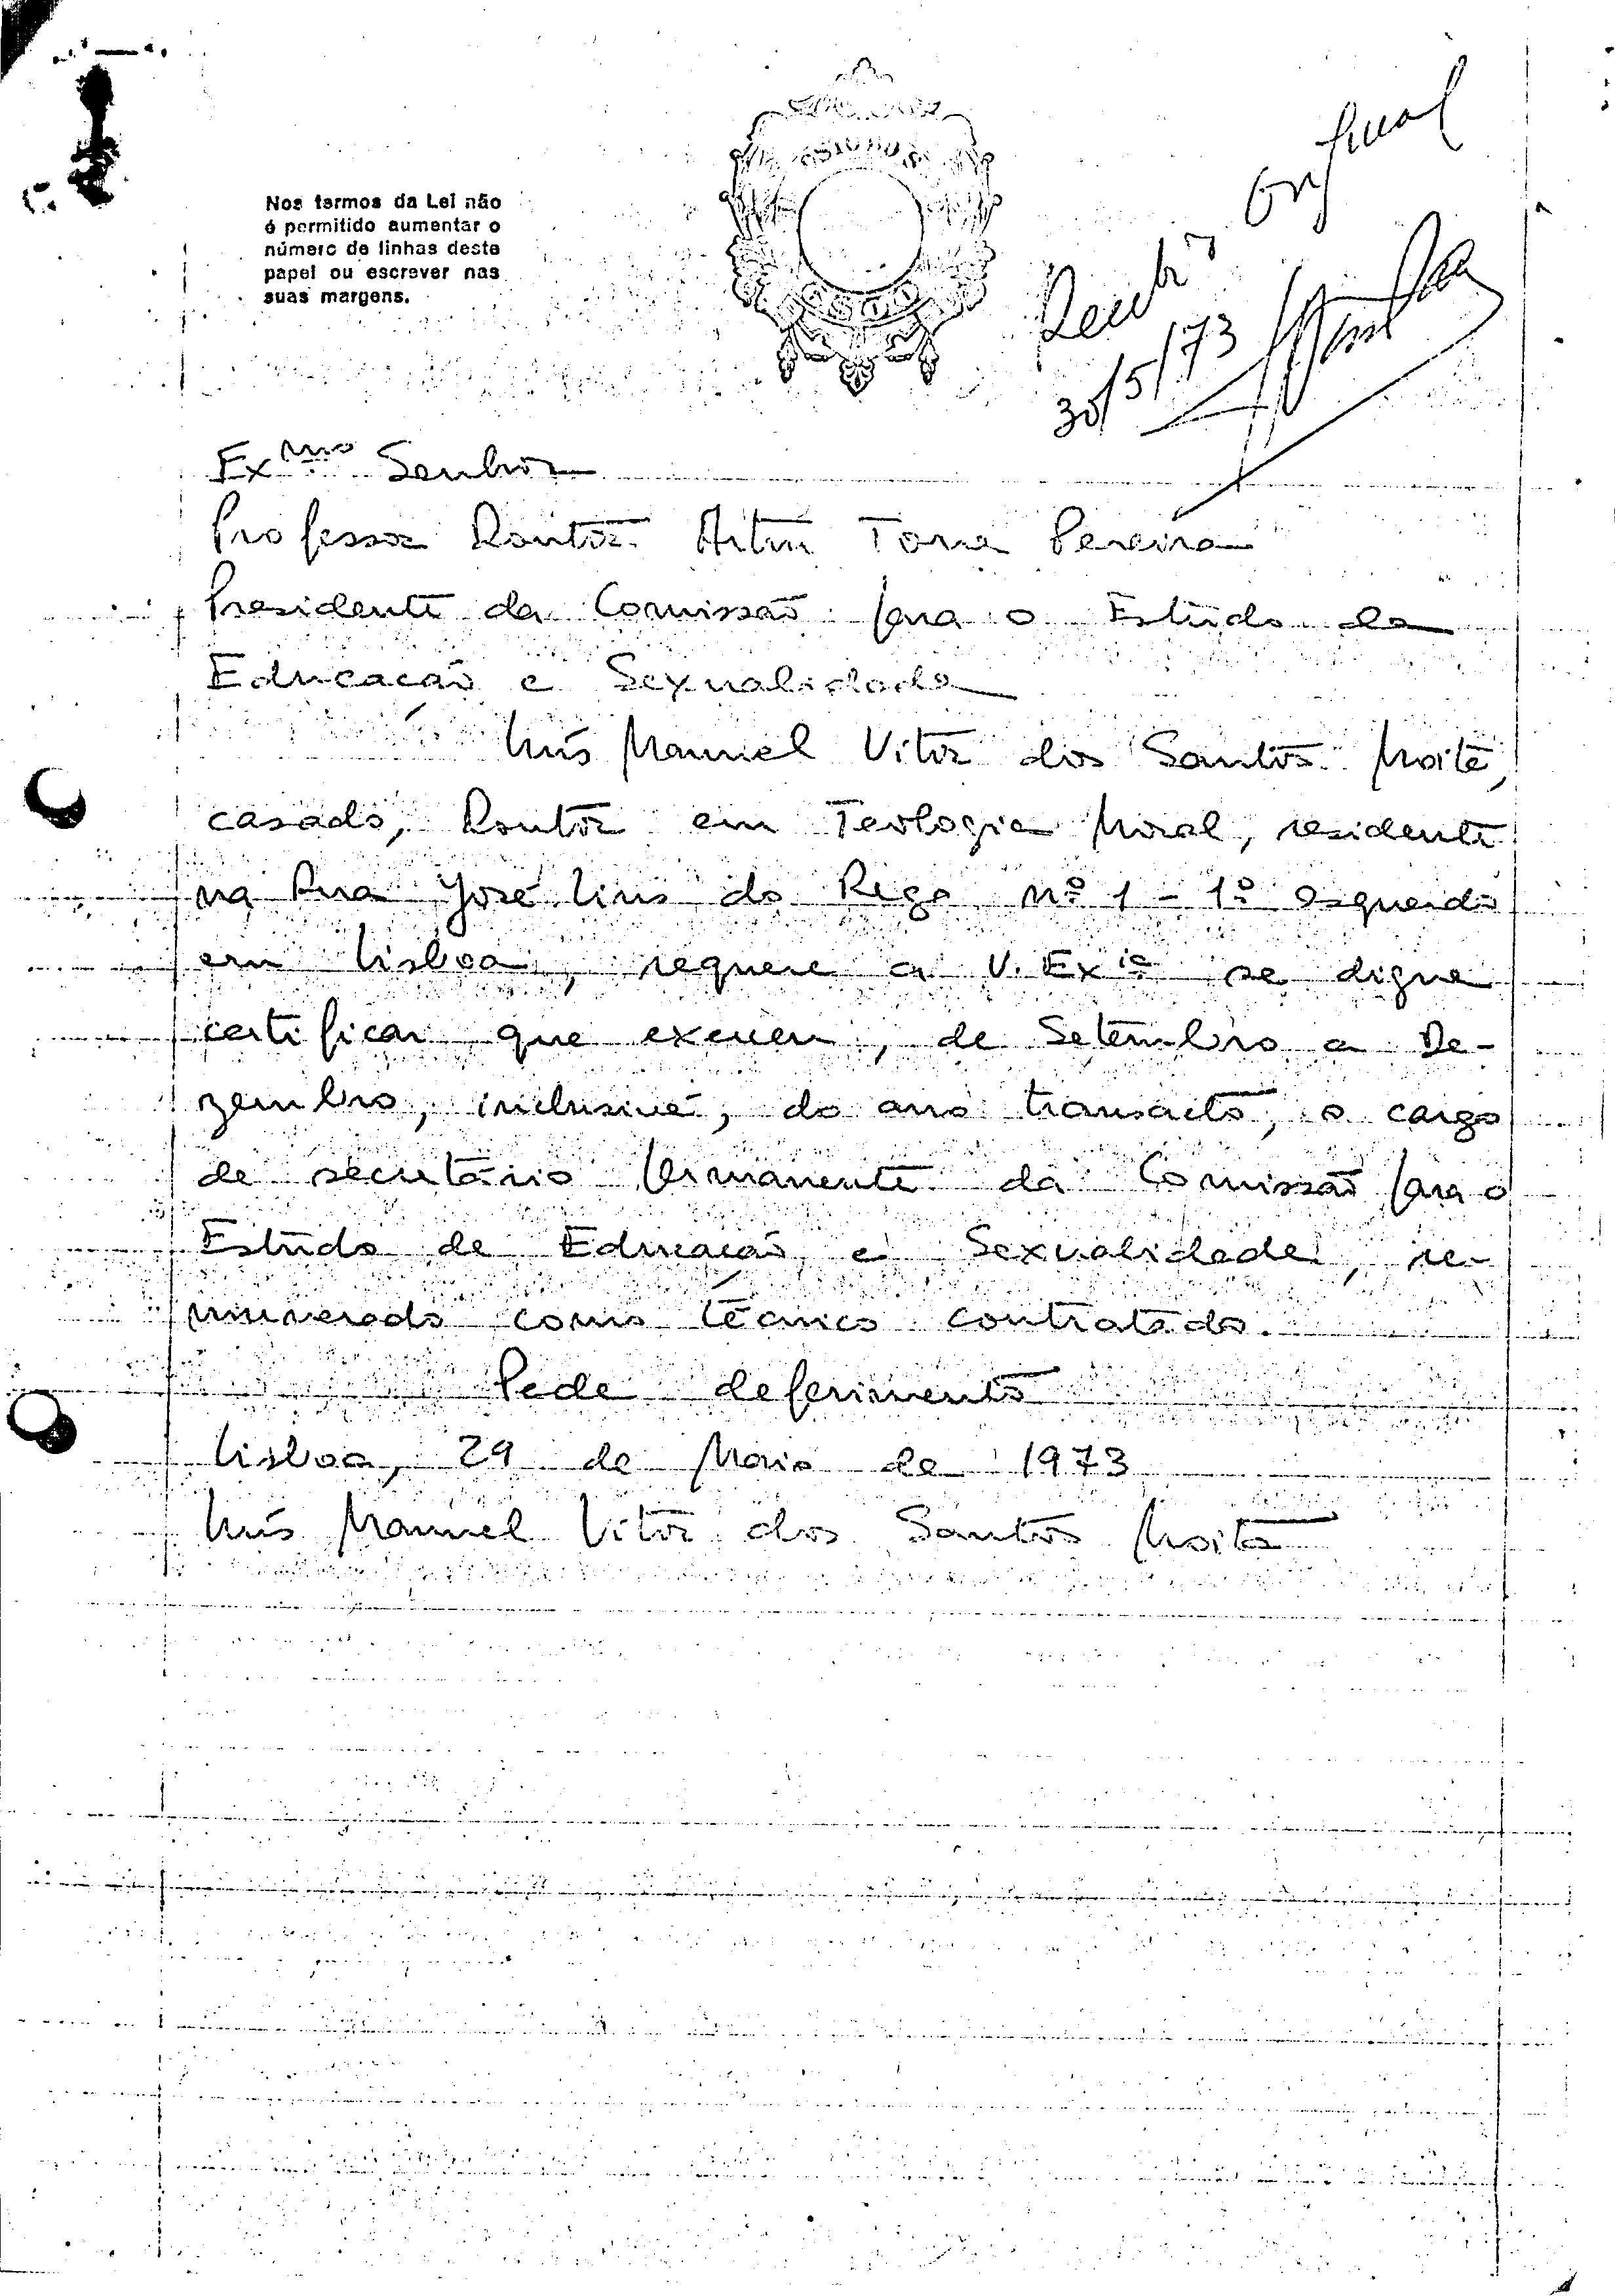 Nos termos da Lei não
é permitido aumentar o
número de linhas deste
papel ou escrever nas
suas margens.
Recebi o original
30/5/73
Exmo Senhor
Professor Doutor Artur Torres Pereira
Presidente da Comissão para o Estudo da
Educação e Sexualidade
Luís Manuel Vitor dos Santos Moita,
casado, Doutor em Teologia Moral, residente
na Rua José Lins do Rego nº 1 - 1º esquerdo
em Lisboa, requere a V. Excia se digne
certificar que exerceu, de Setembro a De-
zembro, inclusivé, do ano transacto, o cargo
de secretário permanente da Comissão para o
Estudo de Educação e Sexualidade, re-
munerado como técnico contratado.
Pede deferimento
Lisboa, 29 de Maio de 1973
Luís Manuel Vitor dos Santos Moita